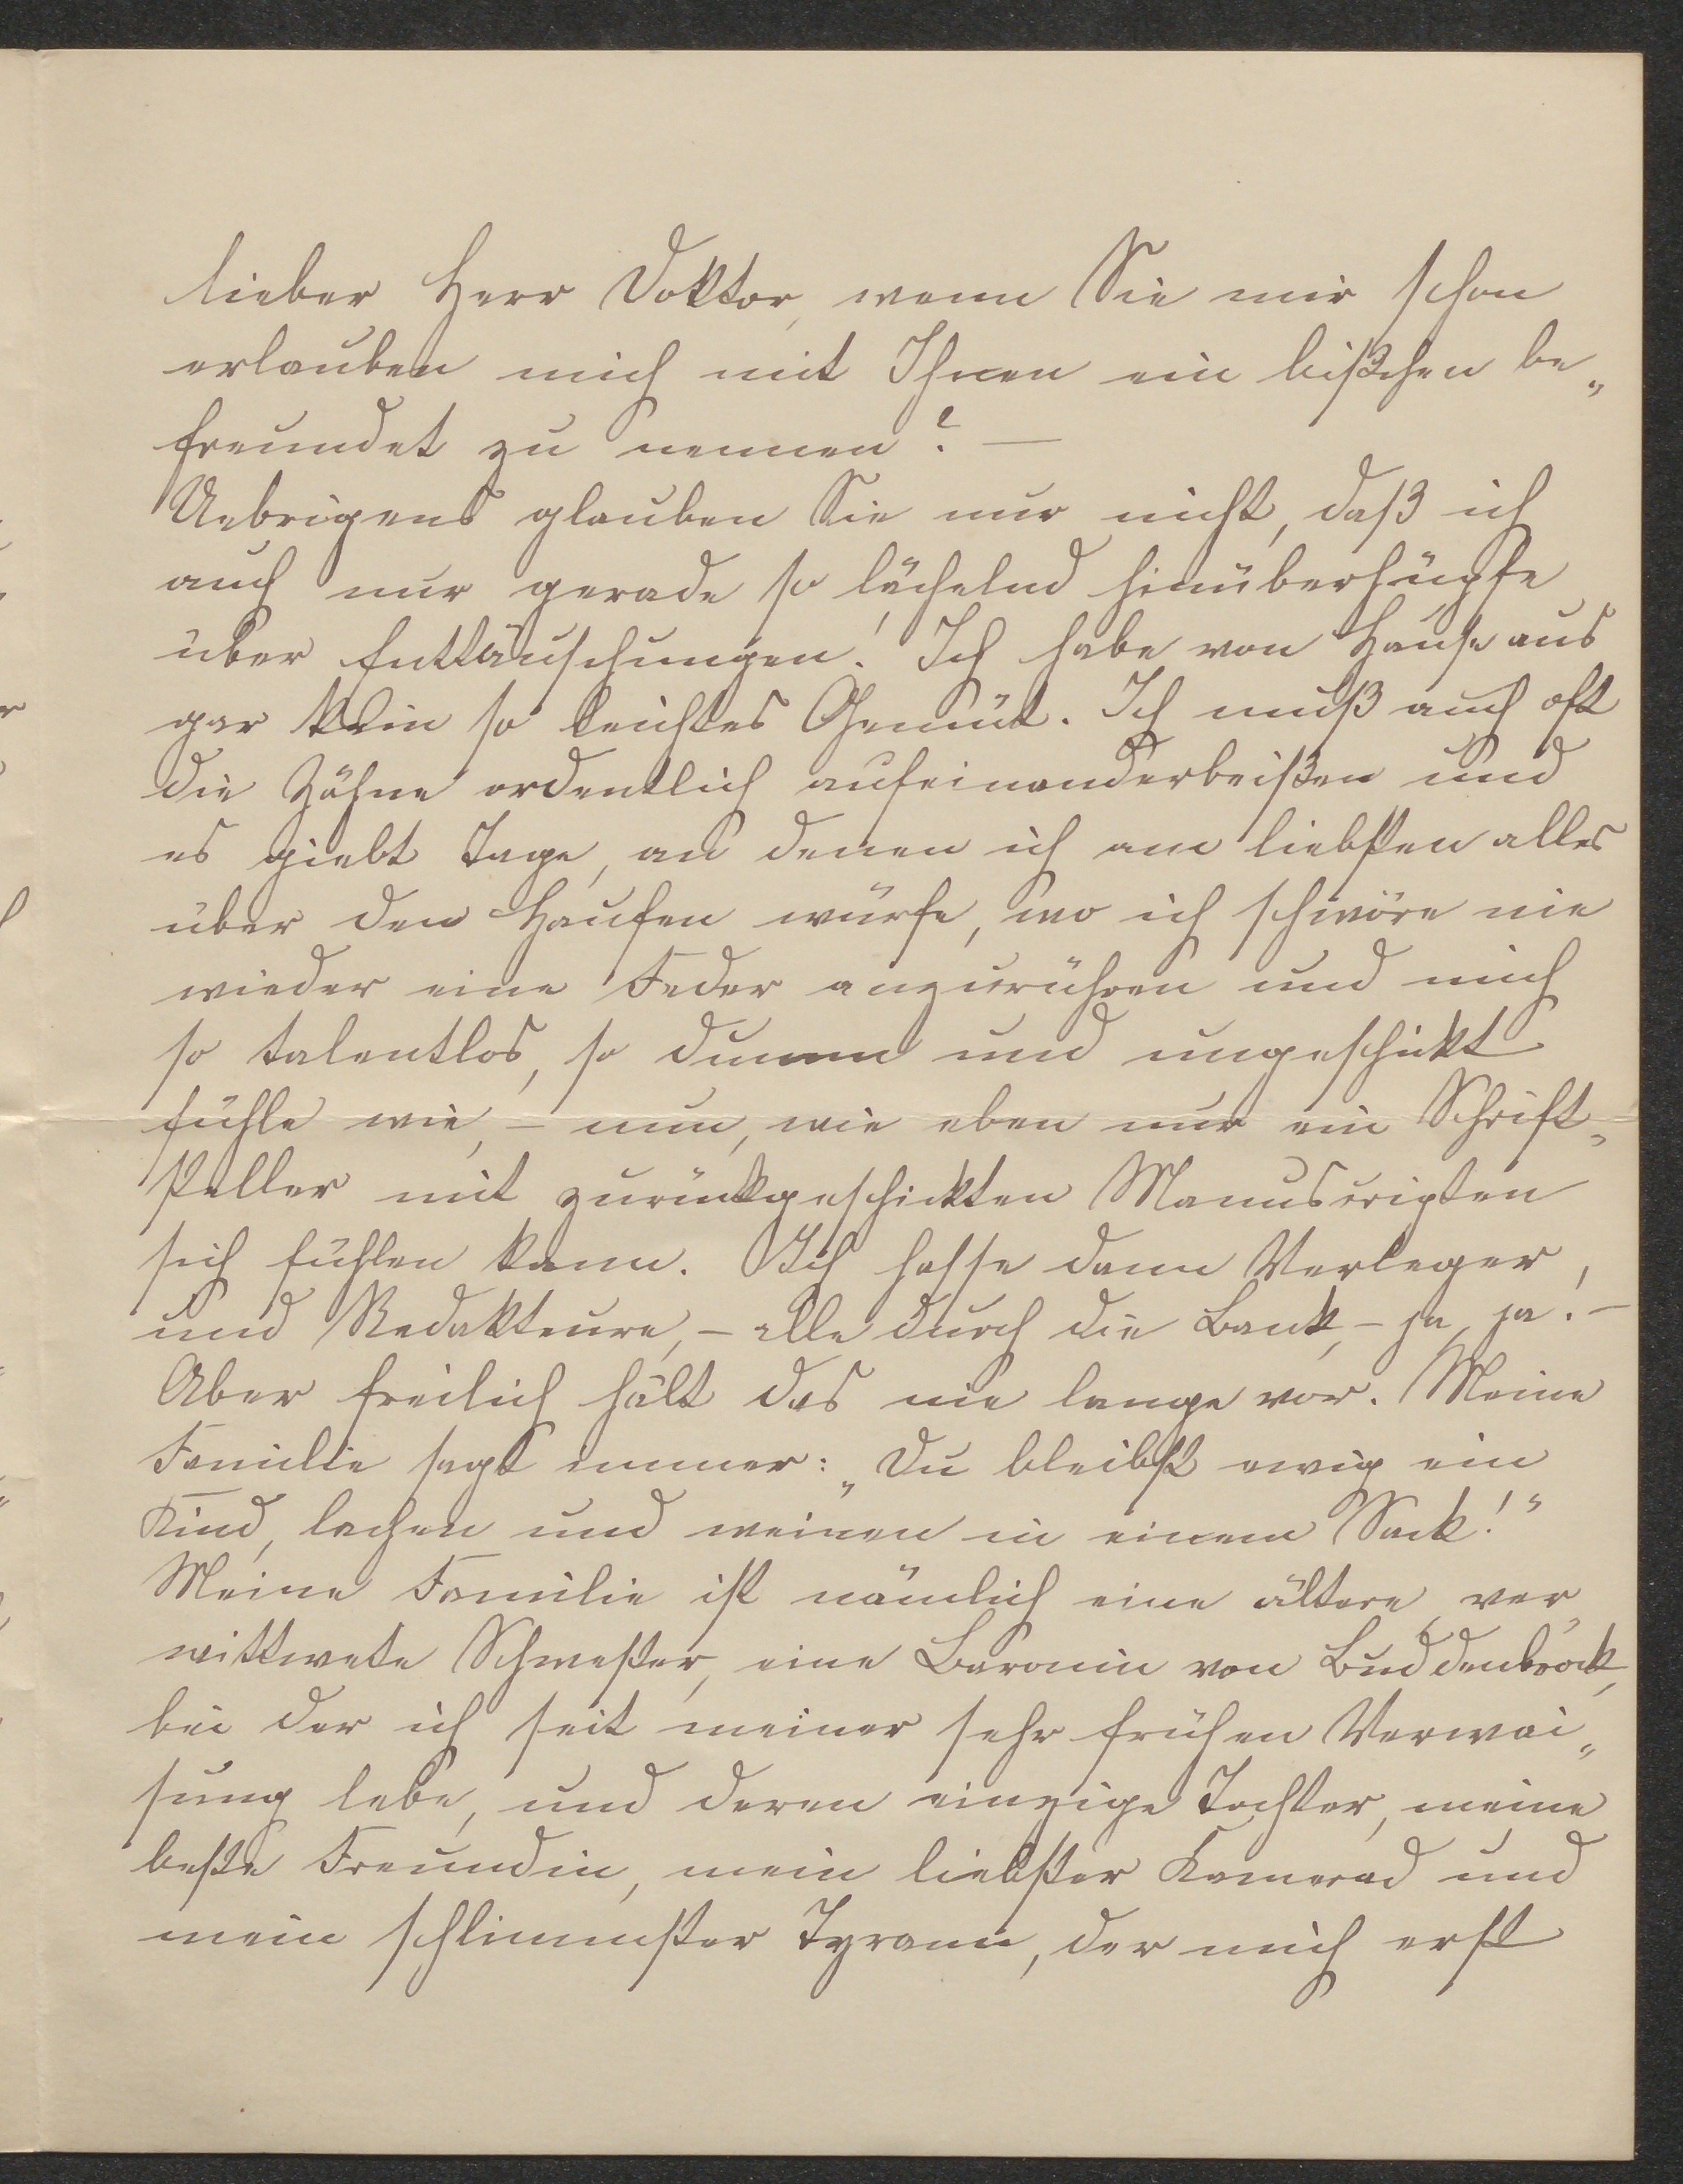 lieber Herr Doktor, wenn Sie mir schon
erlauben mich mit Ihnen ein bißchen be„
freundet zu nennen? —
Uebrigens glauben Sie nur nicht, daß ich
auch nur gerade so lächelnd hinüberhüpfe
über Enttäuschungen! Ich habe von Hause aus
gar kein so leichtes Gemüt. Ich muß auch oft
die Zähne ordentlich aufeinanderbeißen und
es giebt Tage, an denen ich am liebsten alles
über den Haufen würfe, wo ich schwöre nie
wieder eine Feder anzurühren und mich
so talentlos, so dumm und ungeschickt
fühle wie, – nun, wie eben nur ein Schrift„
steller mit zurückgeschickten Manuscripten
sich fühlen kann. Ich hasse dann Verleger
und Redakteure, – alle durch die Bank, – ja, ja! –
Aber freilich hält das nie lange vor. Meine
Familie sagt immer: „Du bleibst ewig ein
Kind, lachen und weinen in einem Sack!“
Meine Familie ist nämlich eine ältere, ver„
wittwete Schwester, eine Baronin von Buddenbrock,
bei der ich seit meiner sehr frühen Verwai„
sung lebe, und deren einzige Tochter, meine
beste Freundin, mein liebster Kamerad und
mein schlimmster Tyrann, der mich erst